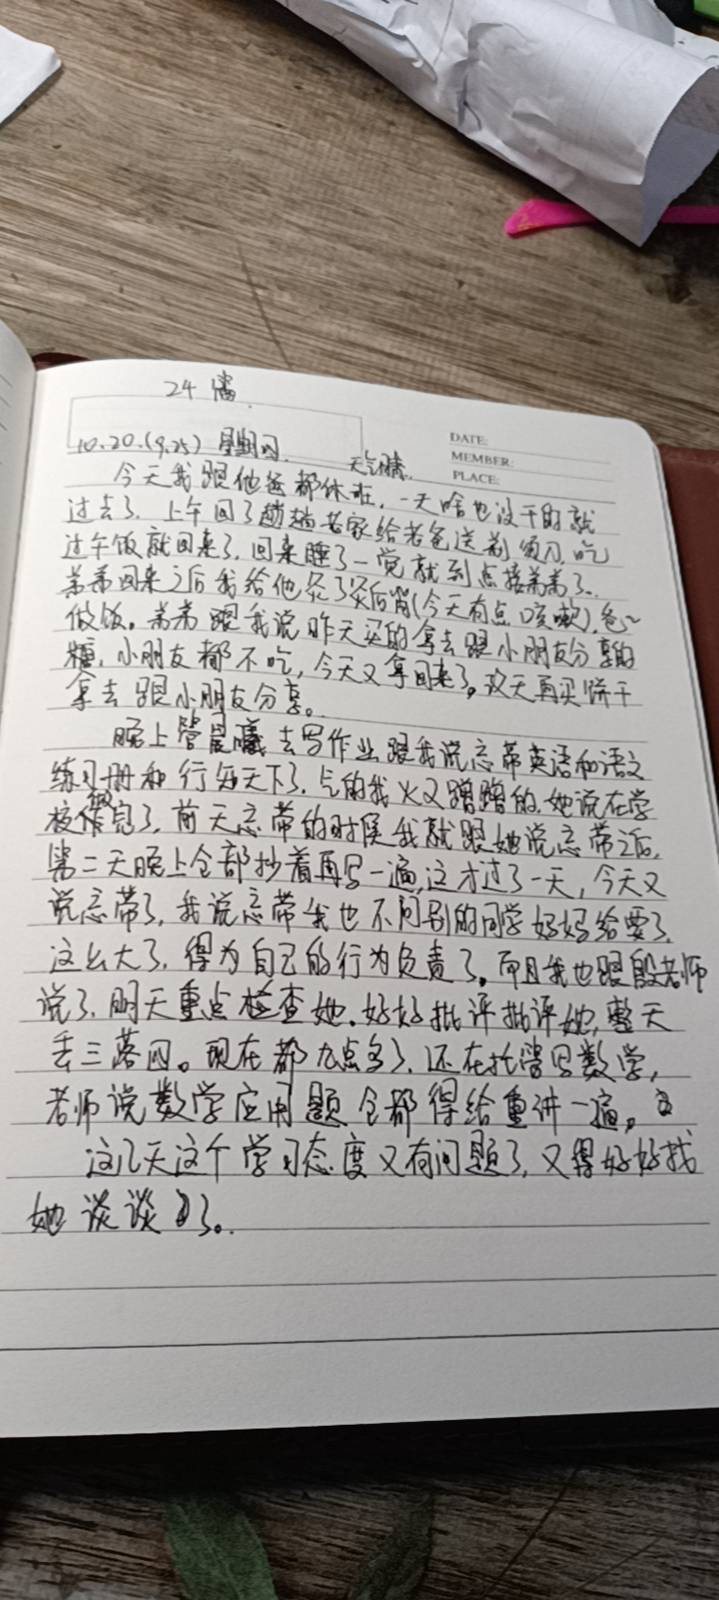 24 篇
DATE:
10.20.(9.25) 星期四. 天气晴.
MEMBER:
PLACE:
今天我跟他爸都休班,一天啥也没干的就
过去了,上午回了趟老家给老爸送剃须刀,吃
过午饭就回来了,回来睡了一觉就到点接弟弟了.
弟弟回来之后我给他灸了灸后背(今天有点咳嗽),爸爸
做饭。弟弟跟我说昨天买的拿去跟小朋友分享的
糖,小朋友都不吃,今天又拿回来了。改天再买饼干
拿去跟小朋友分享。
晚上管晨曦去写作业跟我说忘带英语和语文
练习册和行知天下了,气的我火又蹭蹭的,她说在学
校做完了,前天忘带的时候我就跟她说忘带之后,
第二天晚上全部抄着再写一遍,这才过了一天,今天又
说忘带了,我说忘带我也不问别的同学妈妈给要了,
这么大了,得为自己的行为负责了。而且我也跟殷老师
说了,明天重点检查她,好好批评批评她,整天
丢三落四。现在都九点多了,还在托管写数学,
老师说数学应用题全都得给重讲一遍。
这几天这个学习态度又有问题了,又得好好找
她谈谈了。